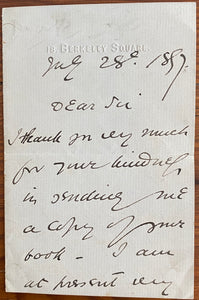 18, BERKELEY SQUARE.
July 28th. 1887.
Dear Sir
I thank you very much
for your kindness
in sending me
a copy of your
book – I am
at present very